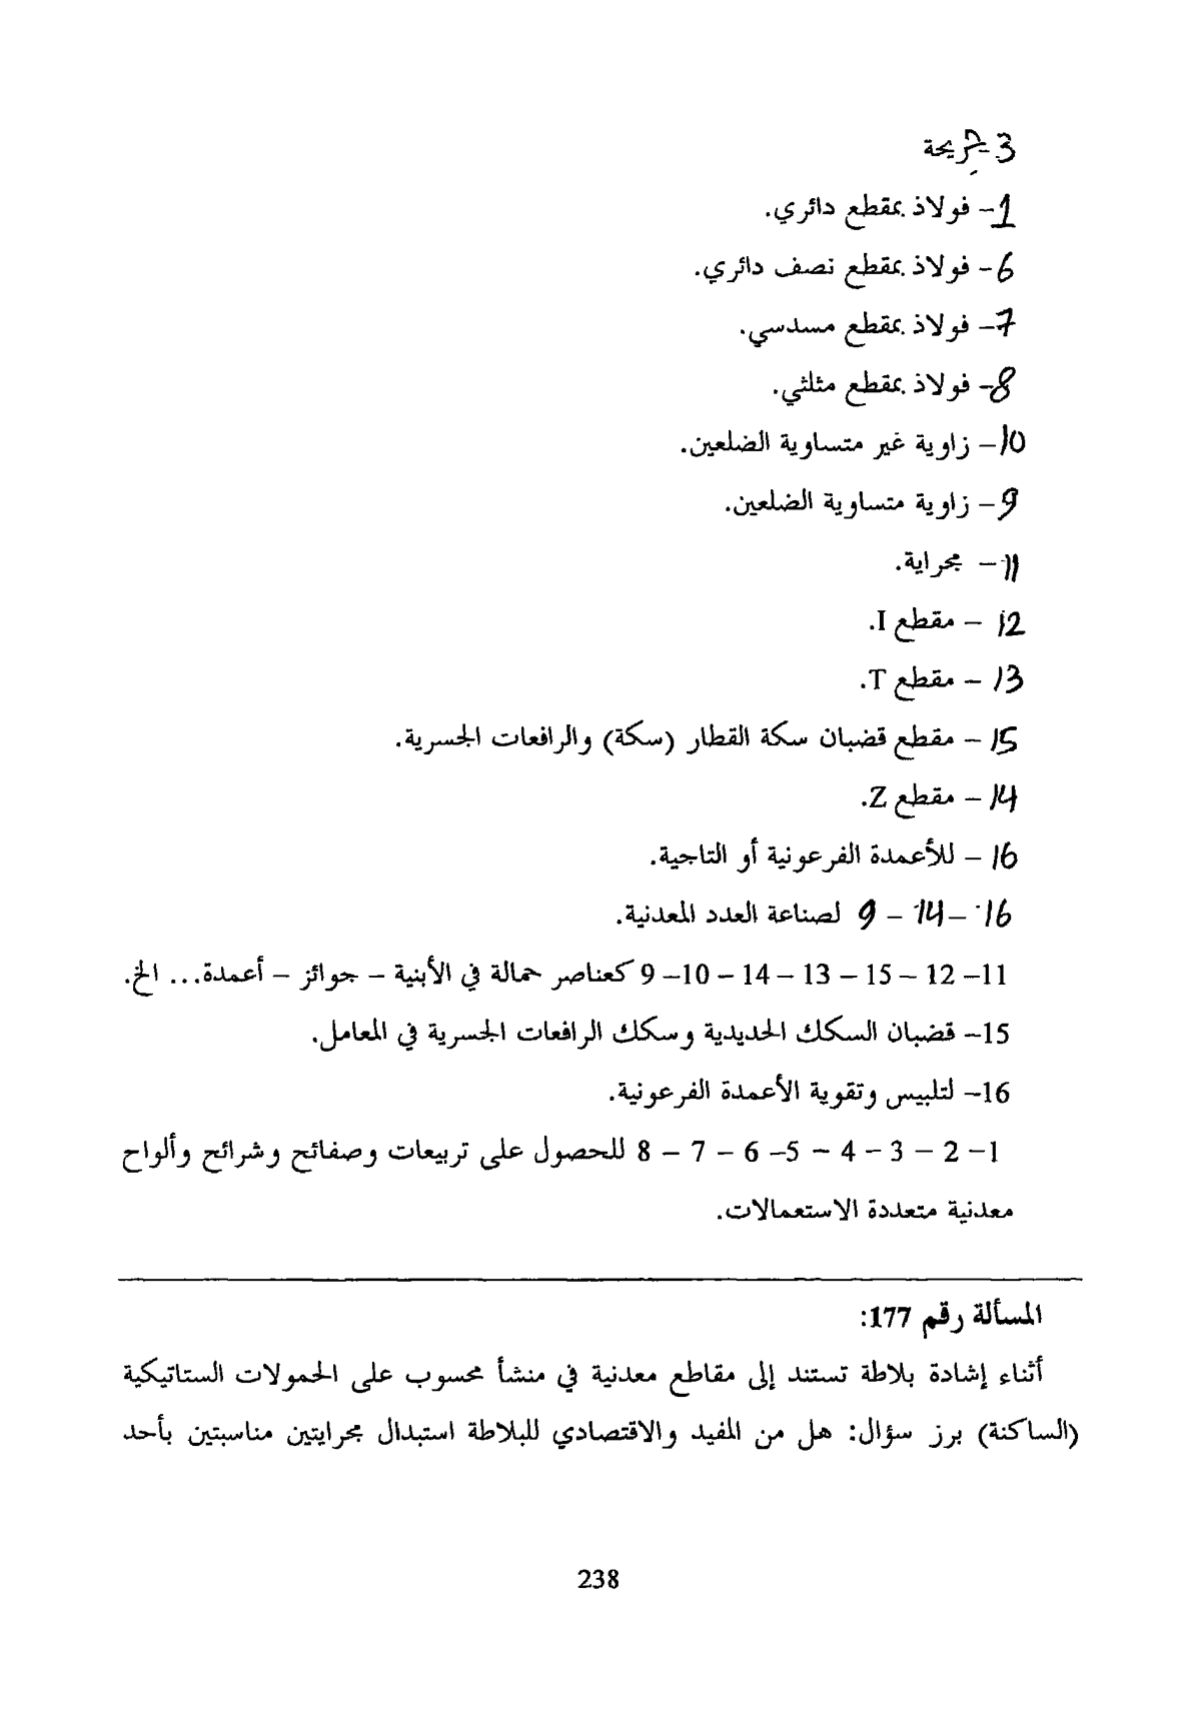 3- شريحة
1- فولاذ بمقطع دائري.
6- فولاذ بمقطع نصف دائري.
7- فولاذ بمقطع مسدسي.
8- فولاذ بمقطع مثلثي.
10- زاوية غير متساوية الضلعين.
9- زاوية متساوية الضلعين.
11- مجراية.
12 - مقطع I.
13 - مقطع T.
15 - مقطع قضبان سكة القطار (سكة) والرافعات الجسرية.
14 - مقطع Z.
16 - للأعمدة الفرعونية أو التاجية.
16 - 14 - 9 لصناعة العدد المعدنية.
11- 12 - 15 - 13 - 14 - 10- 9 كعناصر حمالة في الأبنية - جوائز - أعمدة... الخ.
15- قضبان السكك الحديدية وسكك الرافعات الجسرية في المعامل.
16- لتلبيس وتقوية الأعمدة الفرعونية.
1- 2 - 3 - 4 - 5- 6 - 7 - 8 للحصول على تربيعات وصفائح وشرائح وألواح
معدنية متعددة الاستعمالات.
المسألة رقم 177:
أثناء إشادة بلاطة تستند إلى مقاطع معدنية في منشأ محسوب على الحمولات الستاتيكية
(الساكنة) برز سؤال: هل من المفيد والاقتصادي للبلاطة استبدال مجرايتين مناسبتين بأحد
238